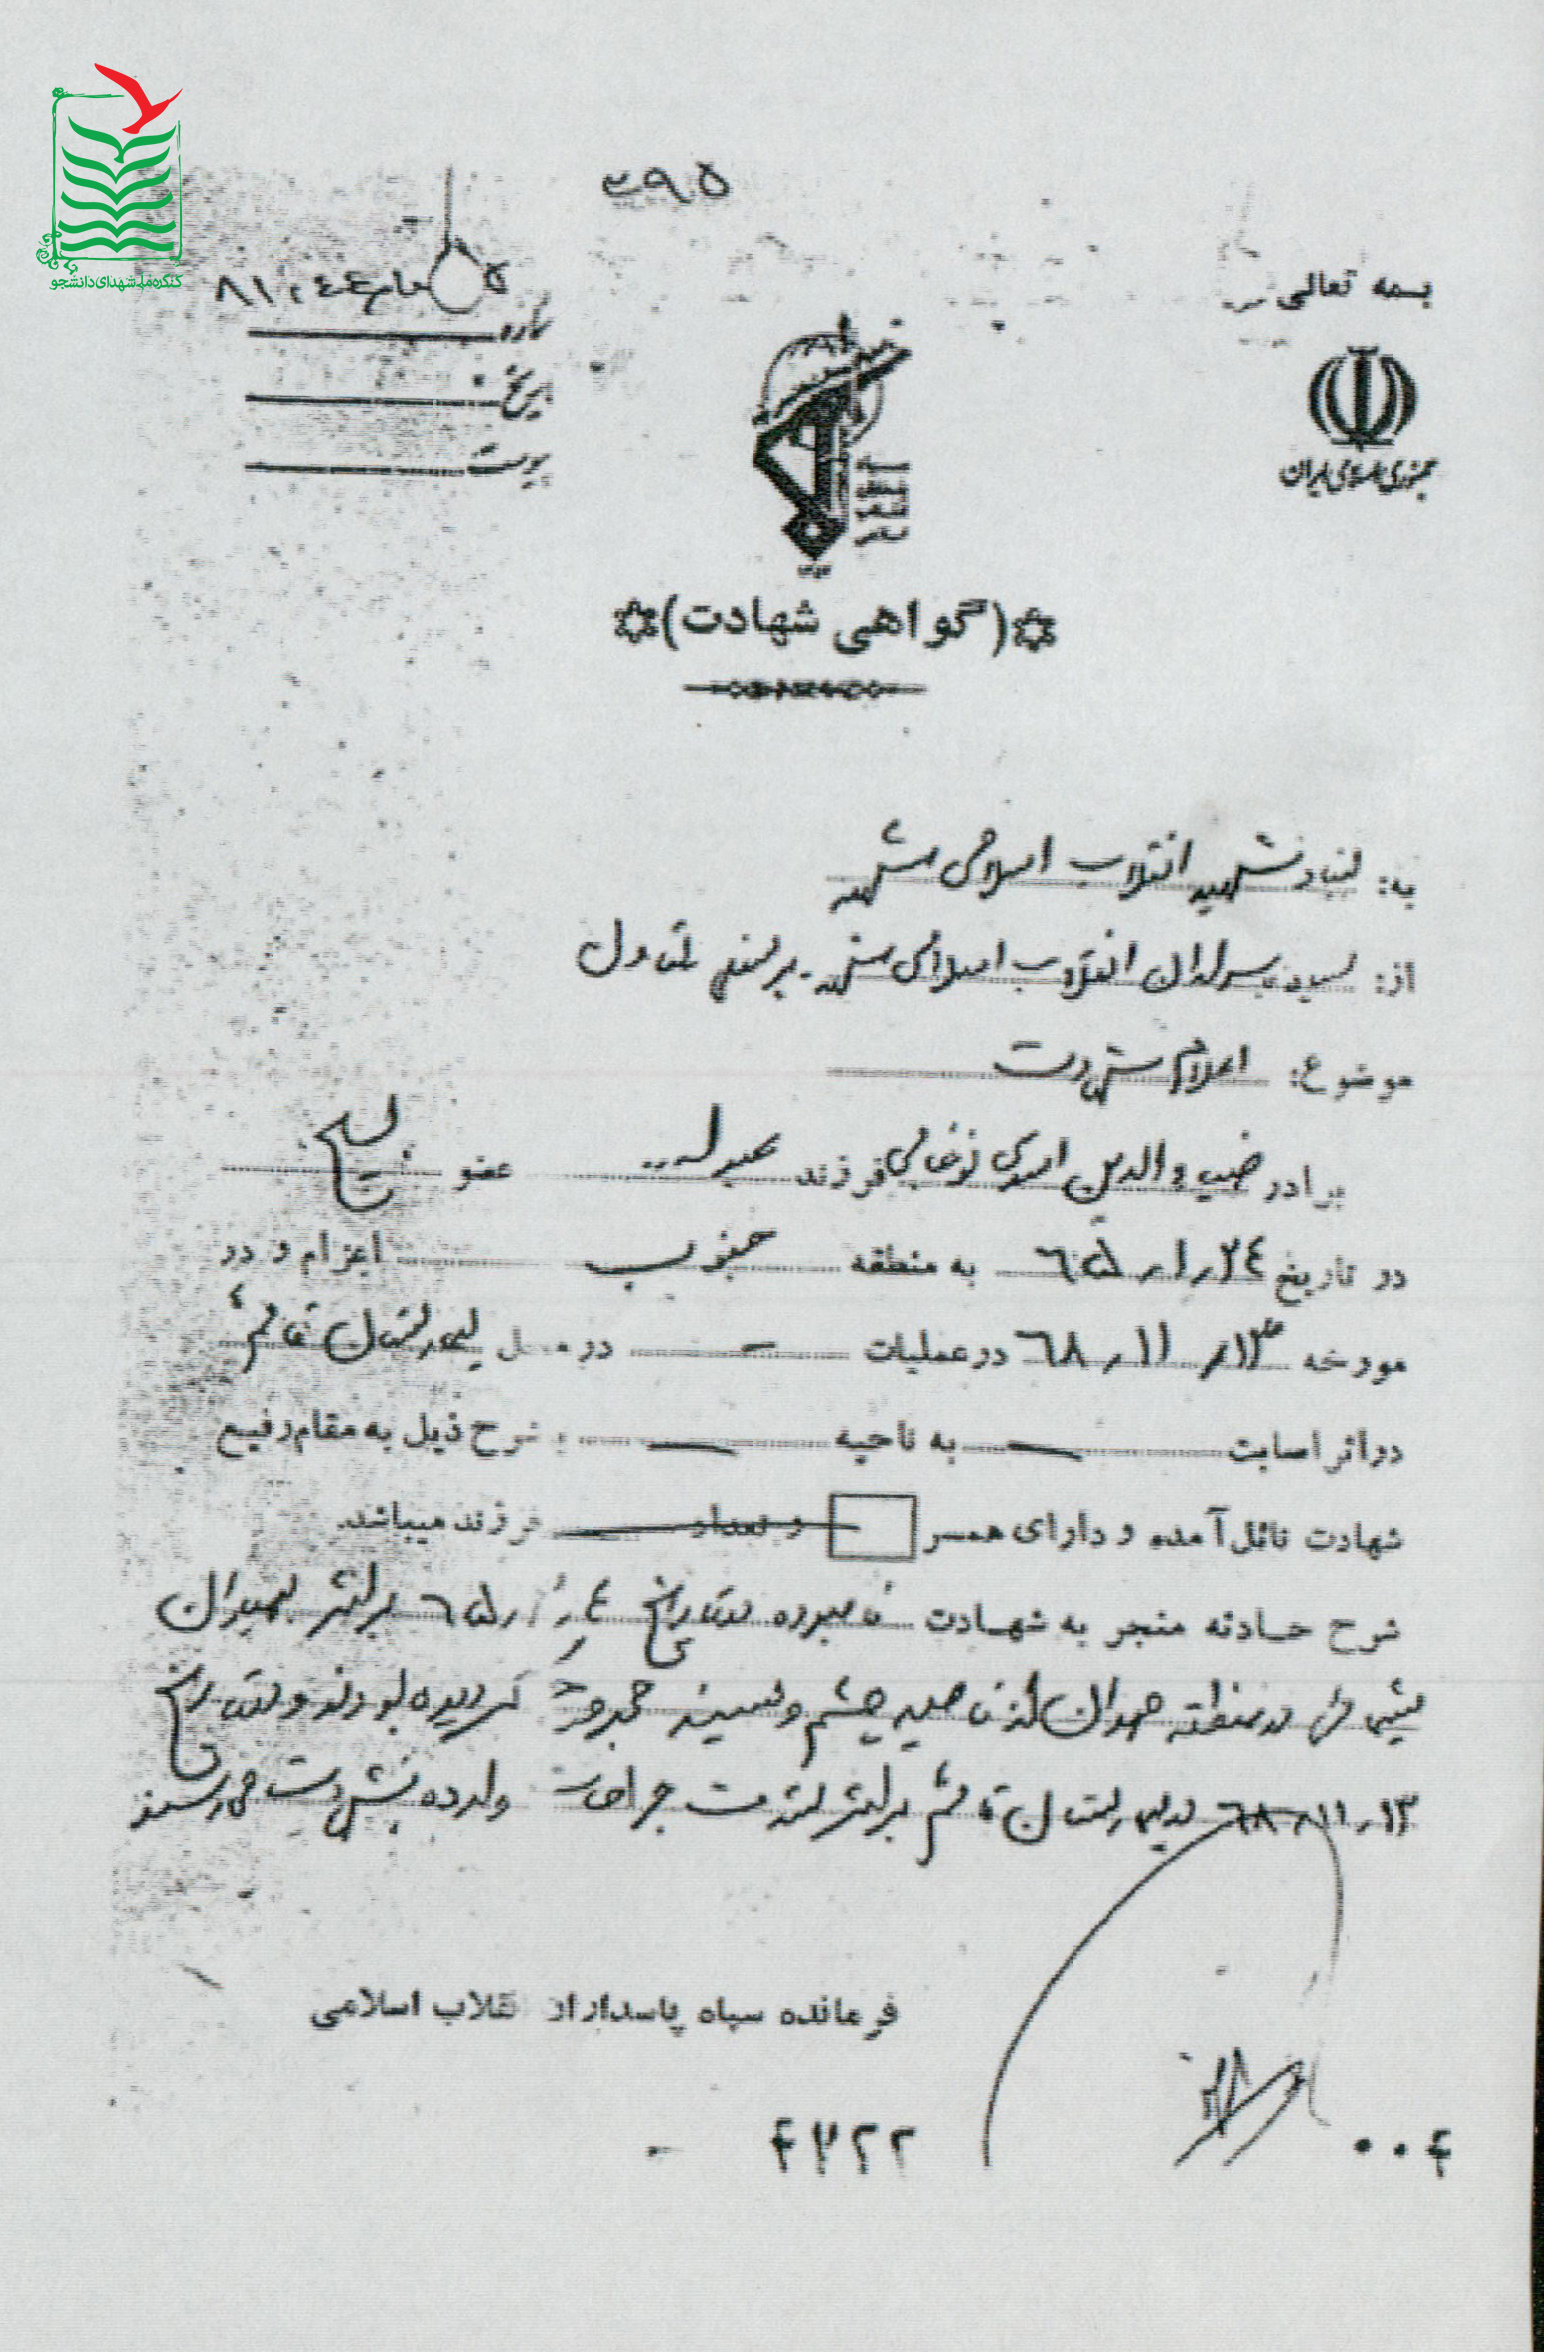 ۳۹۵
بسمه تعالی
کنگره ملی شهدای دانشجو
جمهوری اسلامی ایران
شماره
تاریخ
پیوست
(گواهی شهادت)
به: بنیاد شهید انقلاب اسلامی مشهد
از: سپاه پاسداران انقلاب اسلامی مشهد - پرسنلی تعاون
موضوع: اعلام شهادت
برادر ضیاءالدین اموی نوغابی فرزند عبداله عضو بسیج
در تاریخ ۲۴ر۱ر۶۵ به منطقه جنوب اعزام و در
مورخه ۱۳ر۱۱ر۶۸ در عملیات - در محل بیمارستان قائم
در اثر اصابت — به ناحیه — شرح ذیل به مقام رفیع
شهادت نائل آمده و دارای همسر و تعداد فرزند میباشد.
شرح حادثه منجر به شهادت نامبرده در تاریخ ر۶۵ براثر بمباران
شیمیائی در منطقه مهران از ناحیه چشم و سینه مجروح گردیده بودند و در تاریخ
۱۳ر۱۱ر۶۸ در بیمارستان قائم براثر شدت جراحات وارده بشهادت میرسند
فرمانده سپاه پاسداران انقلاب اسلامی
۴۳۲۲
۰۰۴